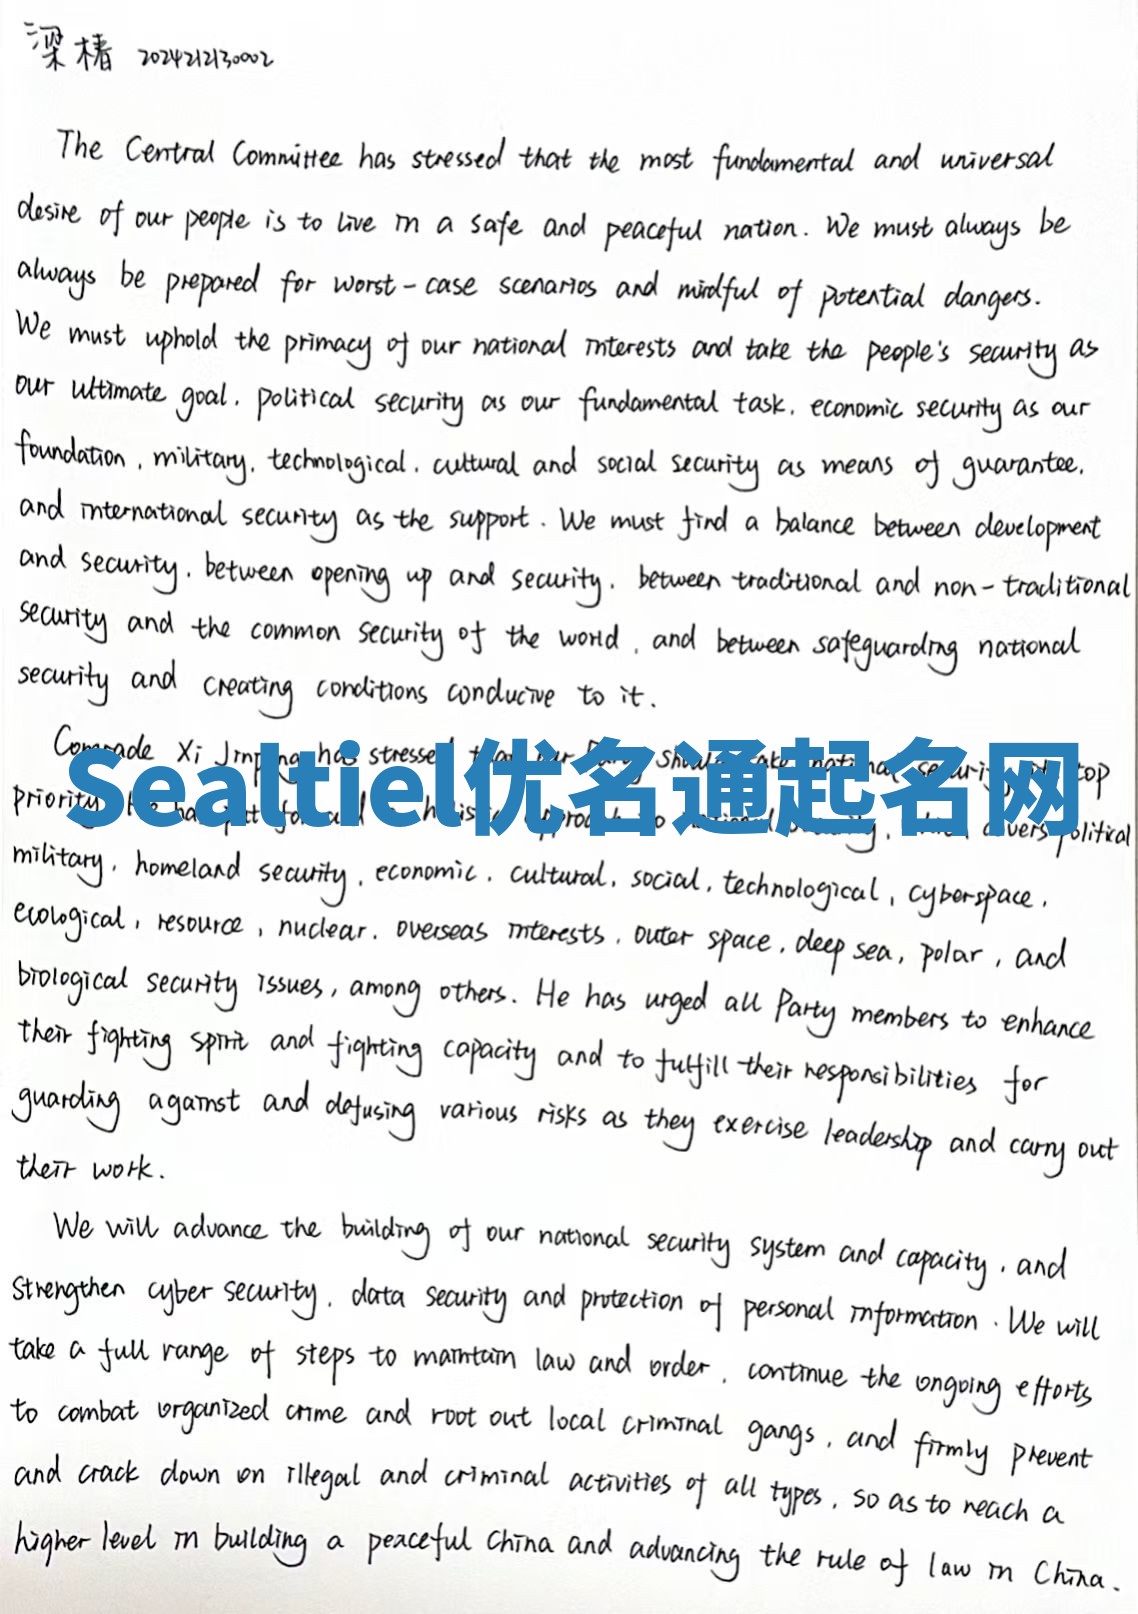 梁椿 2024212130002
The Central Committee has stressed that the most fundamental and universal
desire of our people is to live in a safe and peaceful nation. We must always be
always be prepared for worst-case scenarios and mindful of potential dangers.
We must uphold the primacy of our national interests and take the people's security as
our ultimate goal, political security as our fundamental task, economic security as our
foundation, military, technological, cultural and social security as means of guarantee,
and international security as the support. We must find a balance between development
and security, between opening up and security, between traditional and non-traditional
security and the common security of the world, and between safeguarding national
security and creating conditions conducive to it.
Comrade Xi Jinping has stressed top
Sealtiel优名通起名网
priority. political
military, homeland security, economic, cultural, social, technological, cyberspace,
ecological, resource, nuclear, overseas interests, outer space, deep sea, polar, and
biological security issues, among others. He has urged all Party members to enhance
their fighting spirit and fighting capacity and to fulfill their responsibilities for
guarding against and defusing various risks as they exercise leadership and carry out
their work.
We will advance the building of our national security system and capacity, and
strengthen cyber security, data security and protection of personal information. We will
take a full range of steps to maintain law and order, continue the ongoing efforts
to combat organized crime and root out local criminal gangs, and firmly prevent
and crack down on illegal and criminal activities of all types, so as to reach a
higher level in building a peaceful China and advancing the rule of law in China.